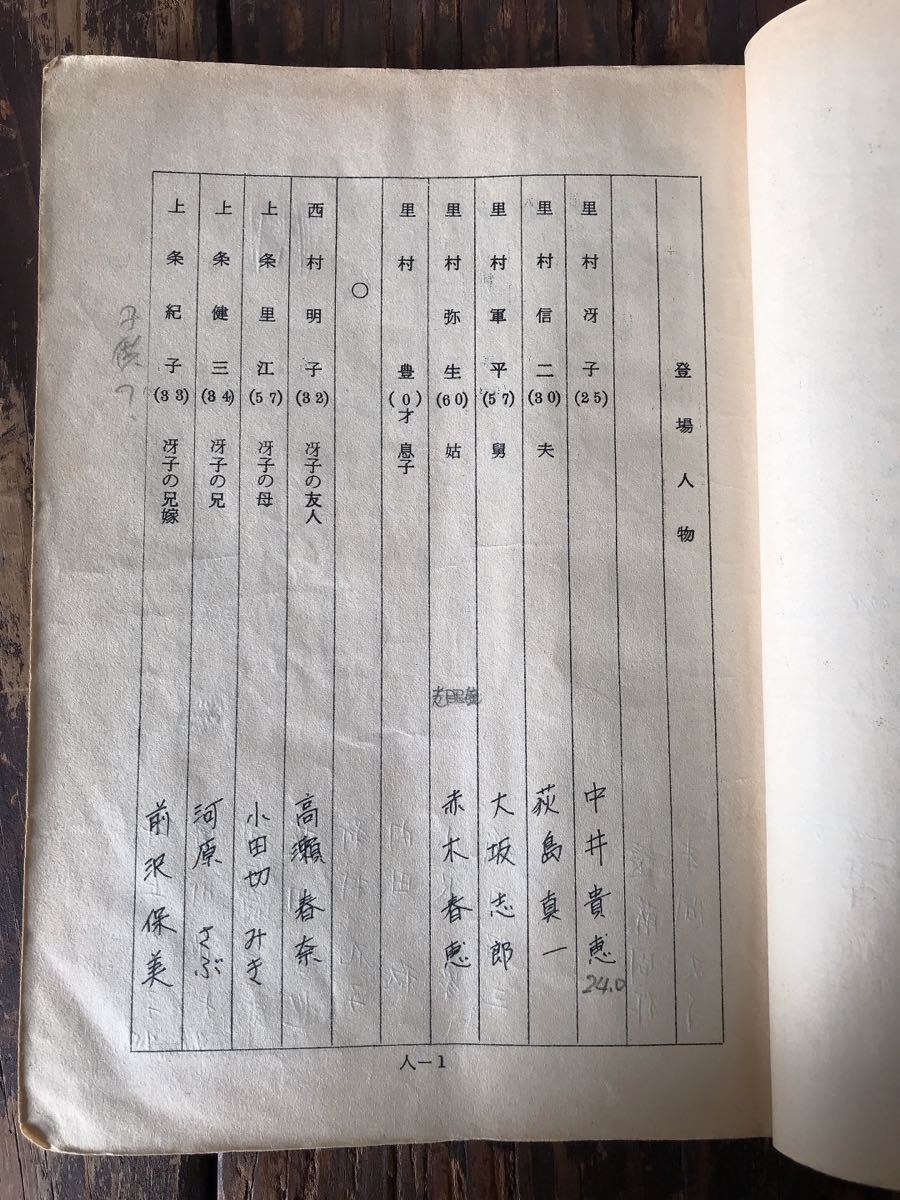 登場人物
里村冴子(25) 中井貴恵
24.0
里村信二(30) 夫 荻島真一
里村軍平(57) 舅 大坂志郎
里村弥生(60) 姑 赤木春恵
里村 豊(0)才 息子
○
西村明子(32) 冴子の友人 高瀬春奈
上条里江(57) 冴子の母 小田切みき
上条健三(34) 冴子の兄 河原さぶ
上条紀子(33) 冴子の兄嫁 前沢保美
人－1